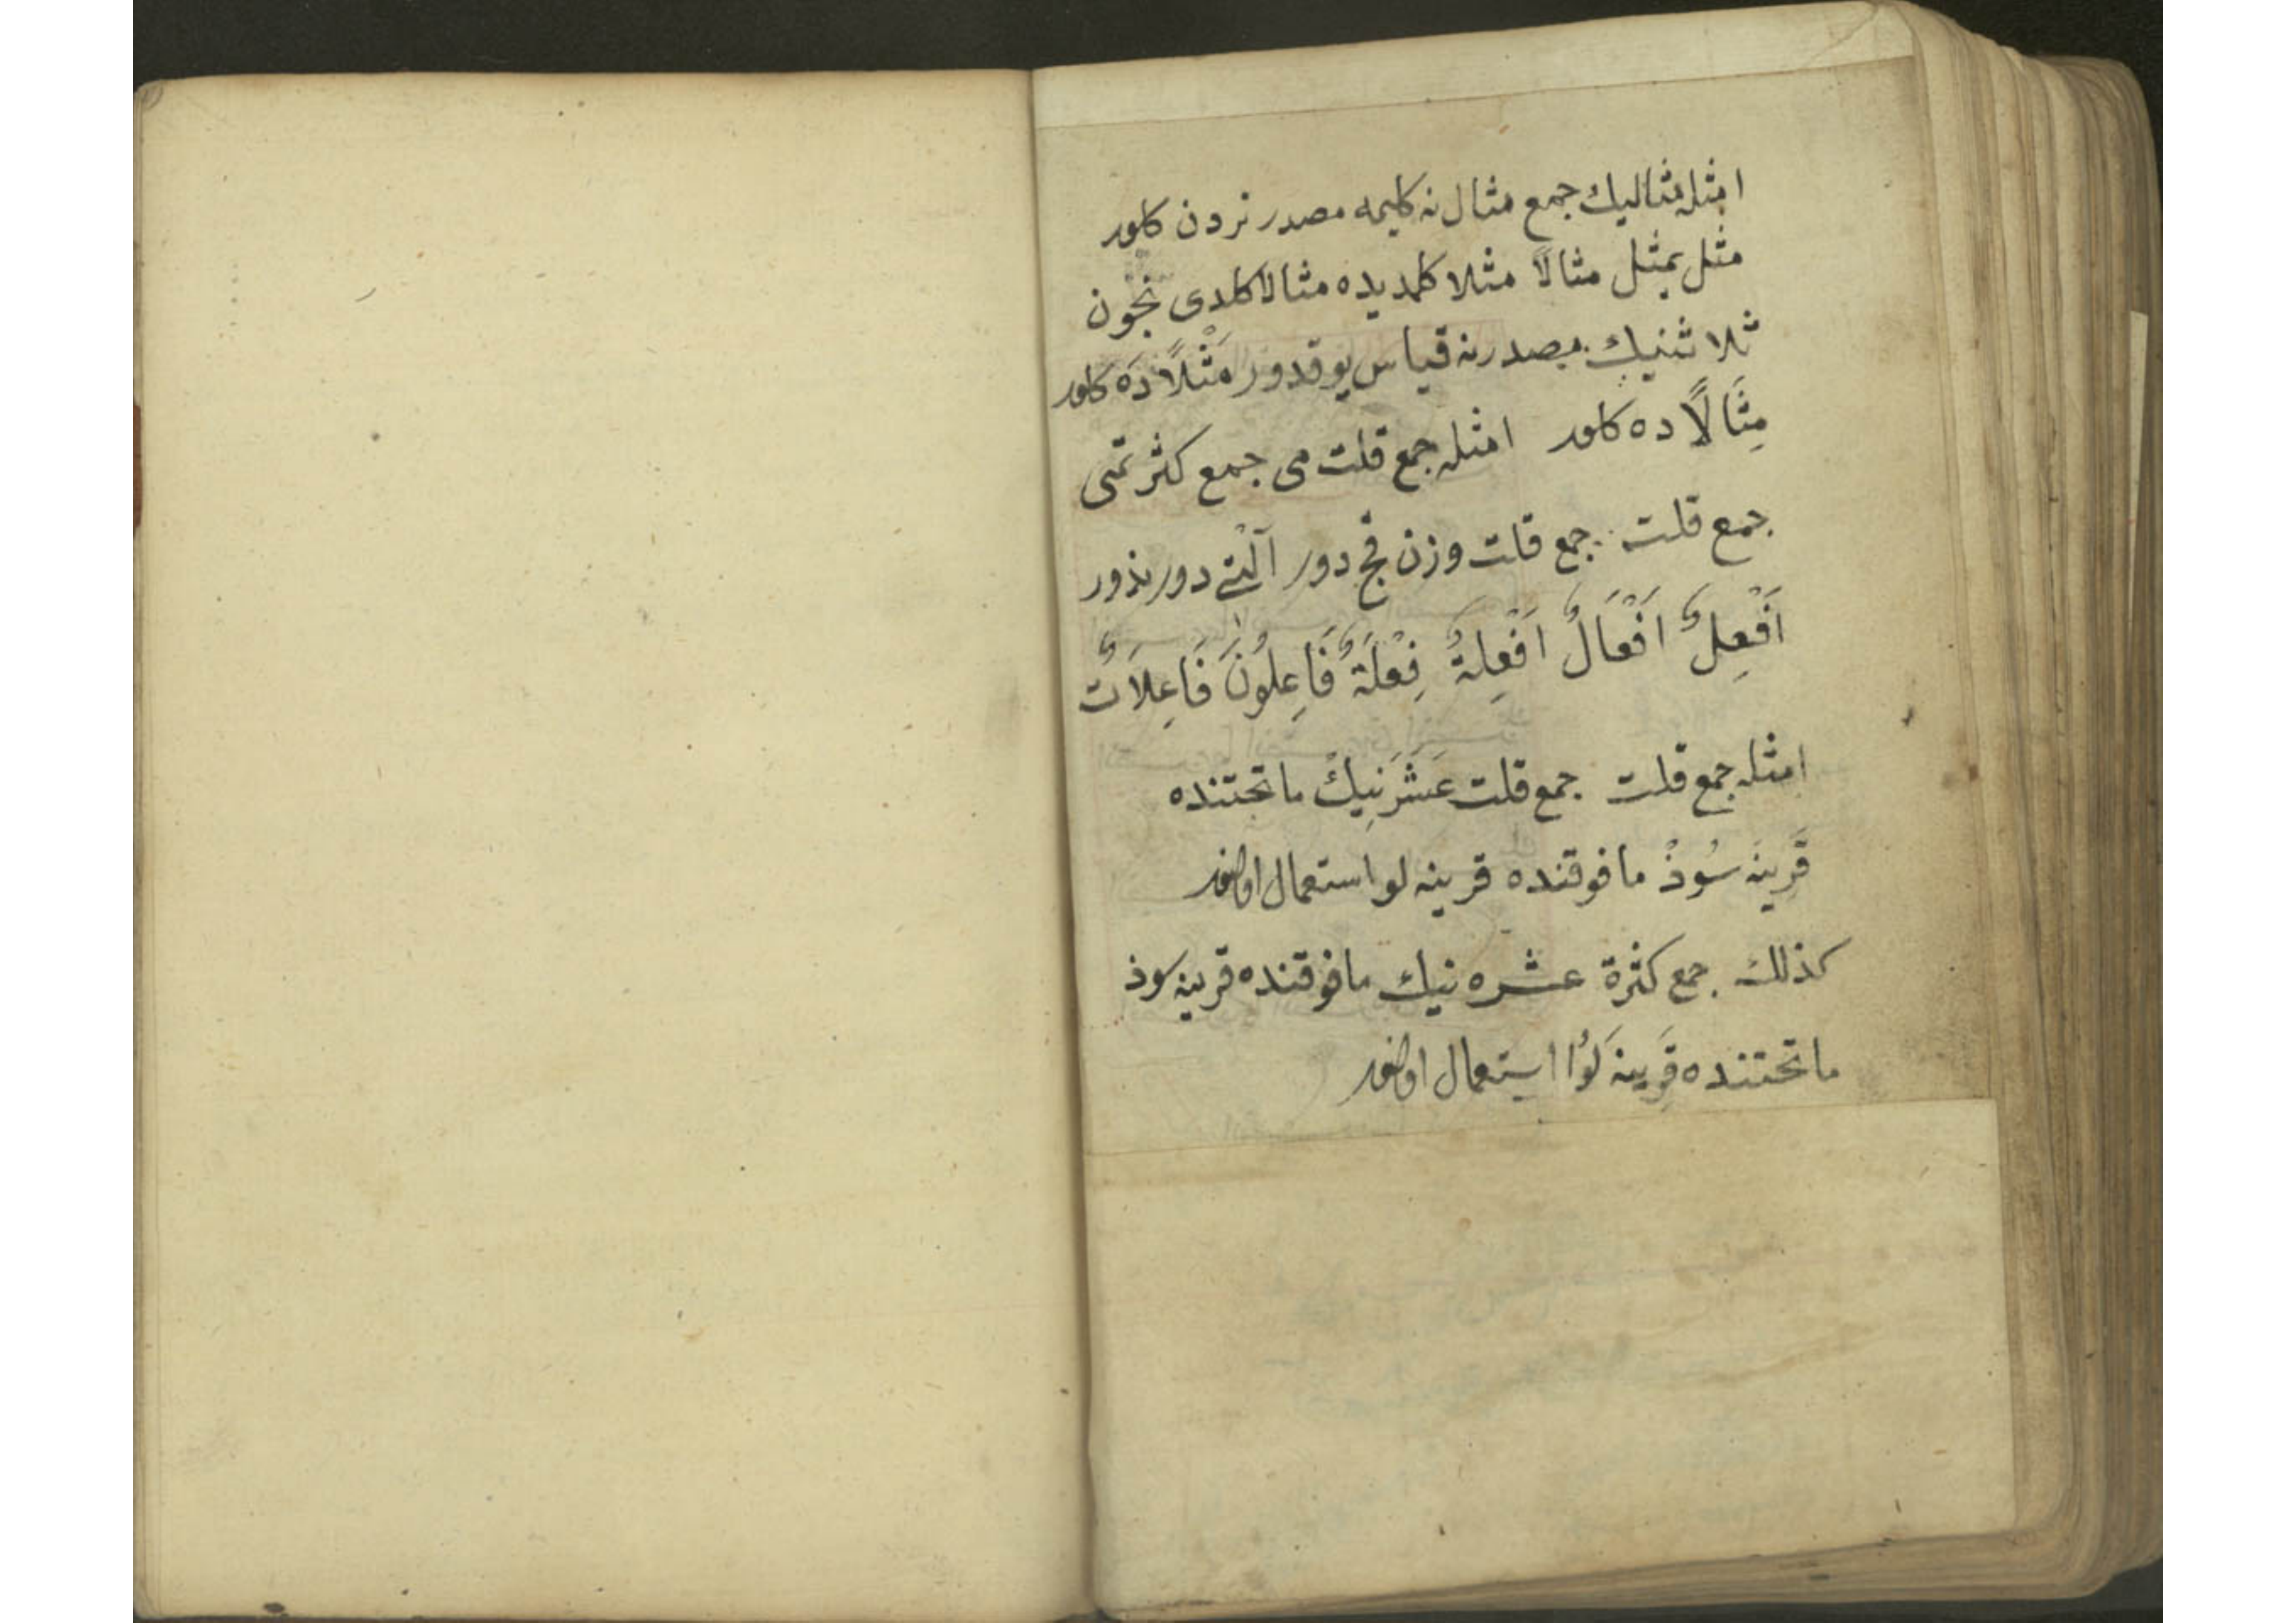 امثله مثاليك جمع مثال نه كليمه مصدر نردن كلور
مثل يمثل مثالًا مثلا كلمديده مثالا كلدى نجون
ثلاثنيك مصدرنه قياس يوقدور مَثْلًا دَه كلور
مِثَالًا ده كلور امثله جمع قلت مى جمع كثرتمى
جمع قلت جمع قلت وزن قچ دور آلْتے دور بذور
اَفْعِلٌ اَفْعَالٌ اَفْعِلَةٌ فِعْلَةٌ فَاعِلُونَ فَاعِلَاتٌ
امثله جمع قلت جمع قلت عَشَرَنِيكْ ماتحتنده
قَرِينَه سُوذْ مافوقنده قرينه لو استعمال اولنور
كذلك جمع كثرة عشره نيك مافوقنده قرينه سوذ
ماتحتنده قَرِينَه لَوُا استعمال اولنور